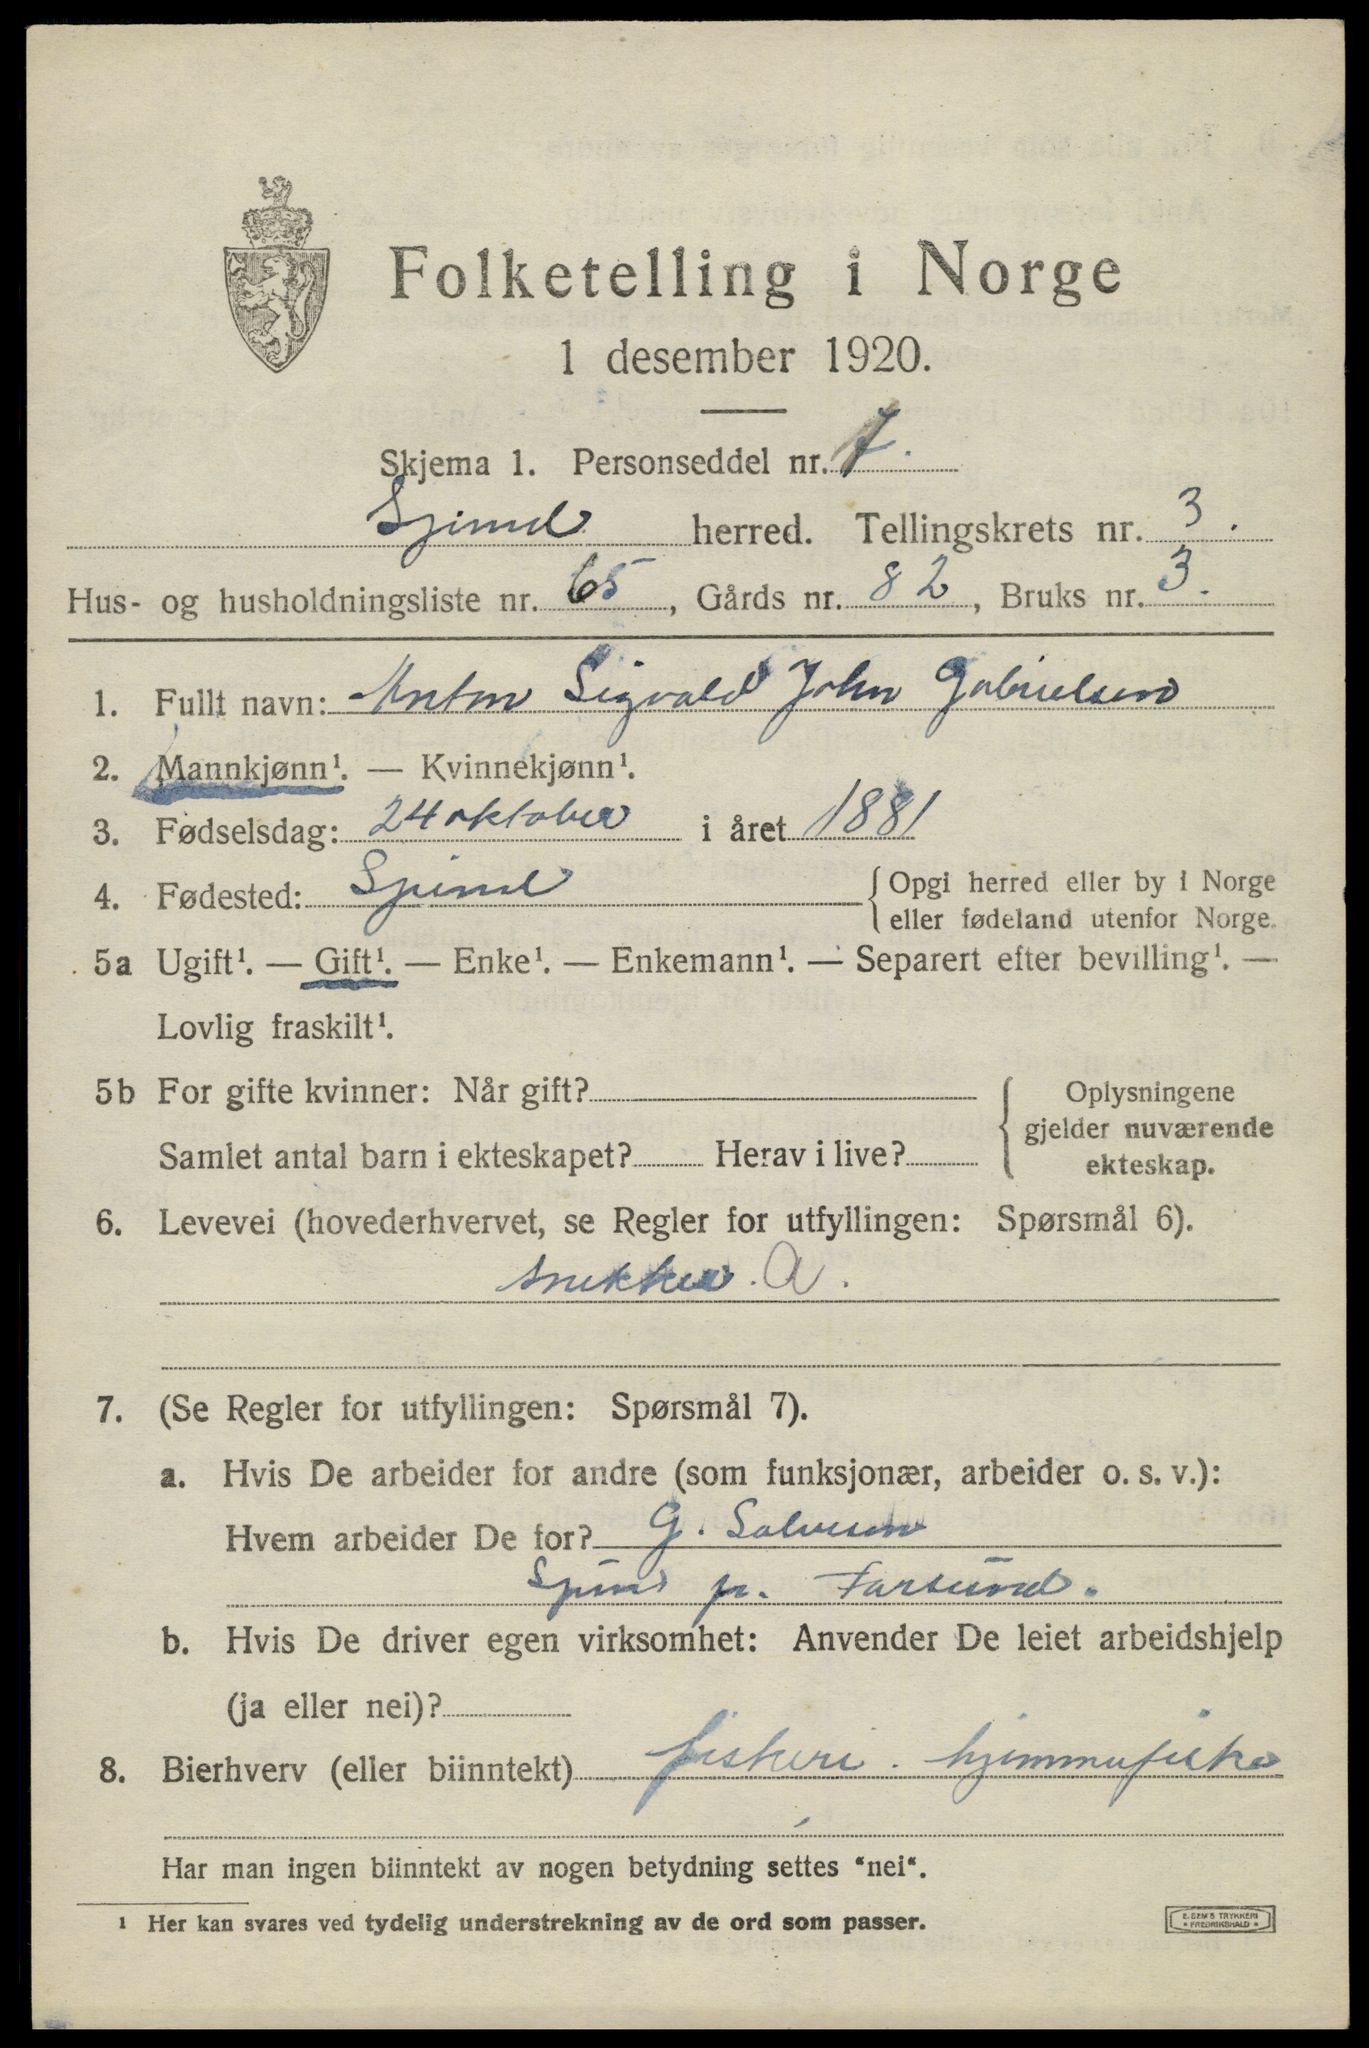 Folketelling i Norge
1 desember 1920.
Skjema 1. Personseddel nr. 7.
Spind herred. Tellingskrets nr. 3.
Hus- og husholdningsliste nr. 65, Gårds nr. 82, Bruks nr. 3.
1. Fullt navn: Anton Sigvald John Gabrielsen
2. Mannkjønn¹. — Kvinnekjønn¹.
3. Fødselsdag: 24 oktober i året 1881
4. Fødested: Spind {Opgi herred eller by i Norge
eller fødeland utenfor Norge.
5a Ugift¹. — Gift¹. — Enke¹. — Enkemann¹. — Separert efter bevilling¹. —
Lovlig fraskilt¹.
5b For gifte kvinner: Når gift?
Samlet antal barn i ekteskapet? Herav i live?
Oplysningene
gjelder nuværende
ekteskap.
6. Levevei (hovederhvervet, se Regler for utfyllingen: Spørsmål 6).
snekker. A.
7. (Se Regler for utfyllingen: Spørsmål 7).
a. Hvis De arbeider for andre (som funksjonær, arbeider o. s. v.):
Hvem arbeider De for? G. Salvesen
Spind pr. Farsund.
b. Hvis De driver egen virksomhet: Anvender De leiet arbeidshjelp
(ja eller nei)?
8. Bierhverv (eller biinntekt) fiskeri. hjemmefiske
Har man ingen biinntekt av nogen betydning settes "nei".
¹ Her kan svares ved tydelig understrekning av de ord som passer.
E. SEM'S TRYKKERI
* FREDRIKSHALD *